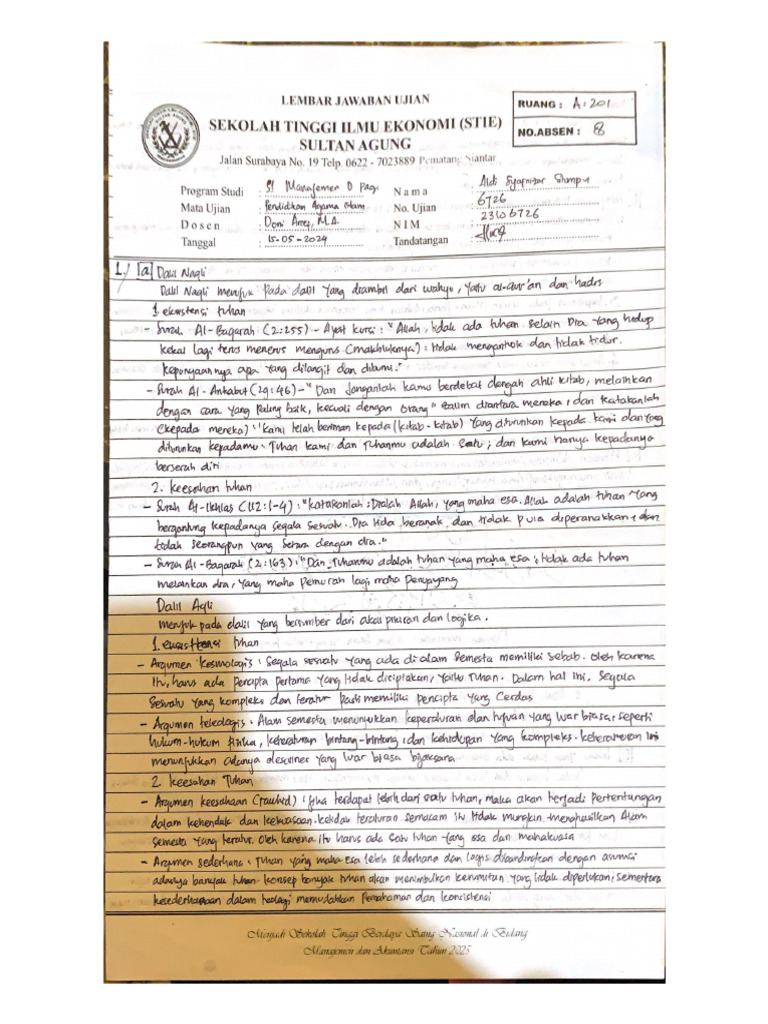 LEMBAR JAWABAN UJIAN
SEKOLAH TINGGI ILMU EKONOMI (STIE)
SULTAN AGUNG
Jalan Surabaya No. 19 Telp. 0622 - 7023889 Pematang Siantar
RUANG : A.201
NO.ABSEN : 8
Program Studi : S1 Manajemen D Pagi
Mata Ujian : Pendidikan Agama Islam
Dosen : Doni Arrey, M.A.
Tanggal : 15-05-2024
Nama : Aldi Syafnizar
No. Ujian : 6726
NIM : 23106726
Tandatangan :
1./ a) Dalil Naqli
Dalil Naqli merujuk pada dalil yang diambil dari wahyu, yaitu al-Qur'an dan hadis
1. eksistensi tuhan
- Surah Al-Baqarah (2:255) - Ayat kursi : "Allah, tidak ada tuhan selain Dia yang hidup
kekal lagi terus menerus mengurus (makhluknya) : tidak mengantuk dan tidak tidur.
kepunyaannya apa yang dilangit dan dibumi."
- Surah Al-Ankabut (29:46) - "Dan Janganlah kamu berdebat dengah ahli kitab, melainkan
dengan cara yang paling baik, kecuali dengan orang" zalim diantara mereka, dan katakanlah
(kepada mereka) : "kami telah beriman kepada (kitab-kitab) yang diturunkan kepada kami dan yang
diturunkan kepadamu. Tuhan kami dan Tuhanmu adalah satu ; dan kami hanya kepadanya
berserah diri
2. keesahan tuhan
- Surah Al-Ikhlas (112:1-4) : "katakanlah : Dialah Allah, yang maha esa. Allah adalah tuhan yang
bergantung kepadanya segala sesuatu. Dia tida beranak, dan tidak pula diperanakkan, dan
tidak seorangpun yang setara dengan dia."
- Surah Al-Baqarah (2:163) : "Dan Tuhanmu adalah tuhan yang maha esa ; tidak ada tuhan
melainkan dia, yang maha pemurah lagi maha penyayang
Dalil Aqli
merujuk pada dalil yang bersumber dari akal pikiran dan logika.
1. eksistensi tuhan
- Argumen kosmologis : Segala sesuatu yang ada di alam semesta memiliki sebab. Oleh karena
itu, harus ada pencipta pertama yang tidak diciptakan, yaitu Tuhan. Dalam hal ini, segala
sesuatu yang kompleks dan teratur pasti memiliki pencipta yang Cerdas
- Argumen teleologis : Alam semesta menunjukkan keperaturan dan tujuan yang luar biasa, seperti
hukum-hukum fisika, keteraturan bintang-bintang, dan kehidupan yang kompleks. keteraturan ini
menunjukkan adanya desuiner yang luar biasa bijaksana
2. keesahan Tuhan
- Argumen keesahaan (Tauhid) : Jika terdapat lebih dari satu tuhan, maka akan terjadi pertentangan
dalam kehendak dan kekuasaan. ketidak teraturan semacam itu tidak mungkin menghasilkan Alam
semesta yang teratur. Oleh karena itu harus ada satu tuhan yang esa dan mahakuasa
- Argumen sederhana : Tuhan yang maha Esa lebih sederhana dan logis dibandingkan dengan asumsi
adanya banyak tuhan. konsep banyak tuhan akan menimbulkan kerumitan yang tidak diperlukan, sementara
kesederhanaan dalam teologi memudahkan pemahaman dan konsistensi
Menjadi Sekolah Tinggi Berdaya Saing Nasional di Bidang
Manajemen dan Akuntansi Tahun 2025